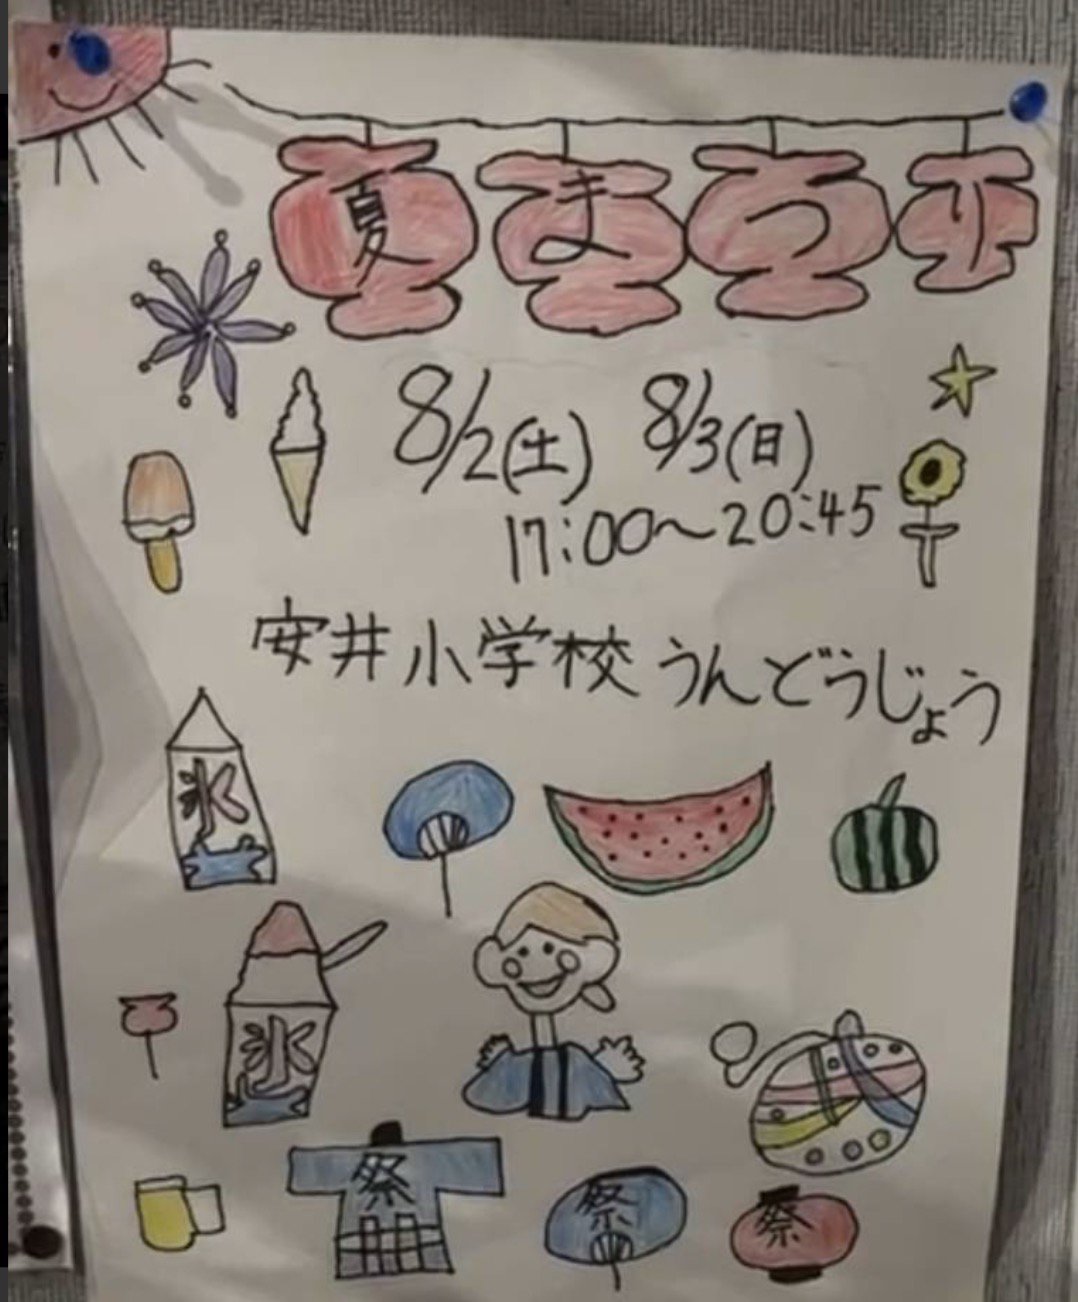 夏まつり
8/2(土) 8/3(日)
17:00～20:45
安井小学校 うんどうじょう
氷
氷
祭
祭
祭